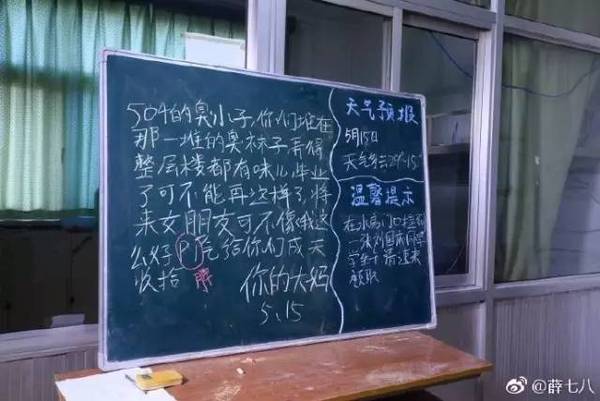 504的臭小子,你们堆在
那一堆的臭袜子弄得
整层楼都有味儿,毕业
了可不能再这样了,将
来女朋友可不像我这
么好P 给你们成天
收拾 脾
你的大妈
5.15
天气预报
5月15日
天气多云29°-15°
温馨提示
在水房门口捡到
同学
速来
领取
@薛七八